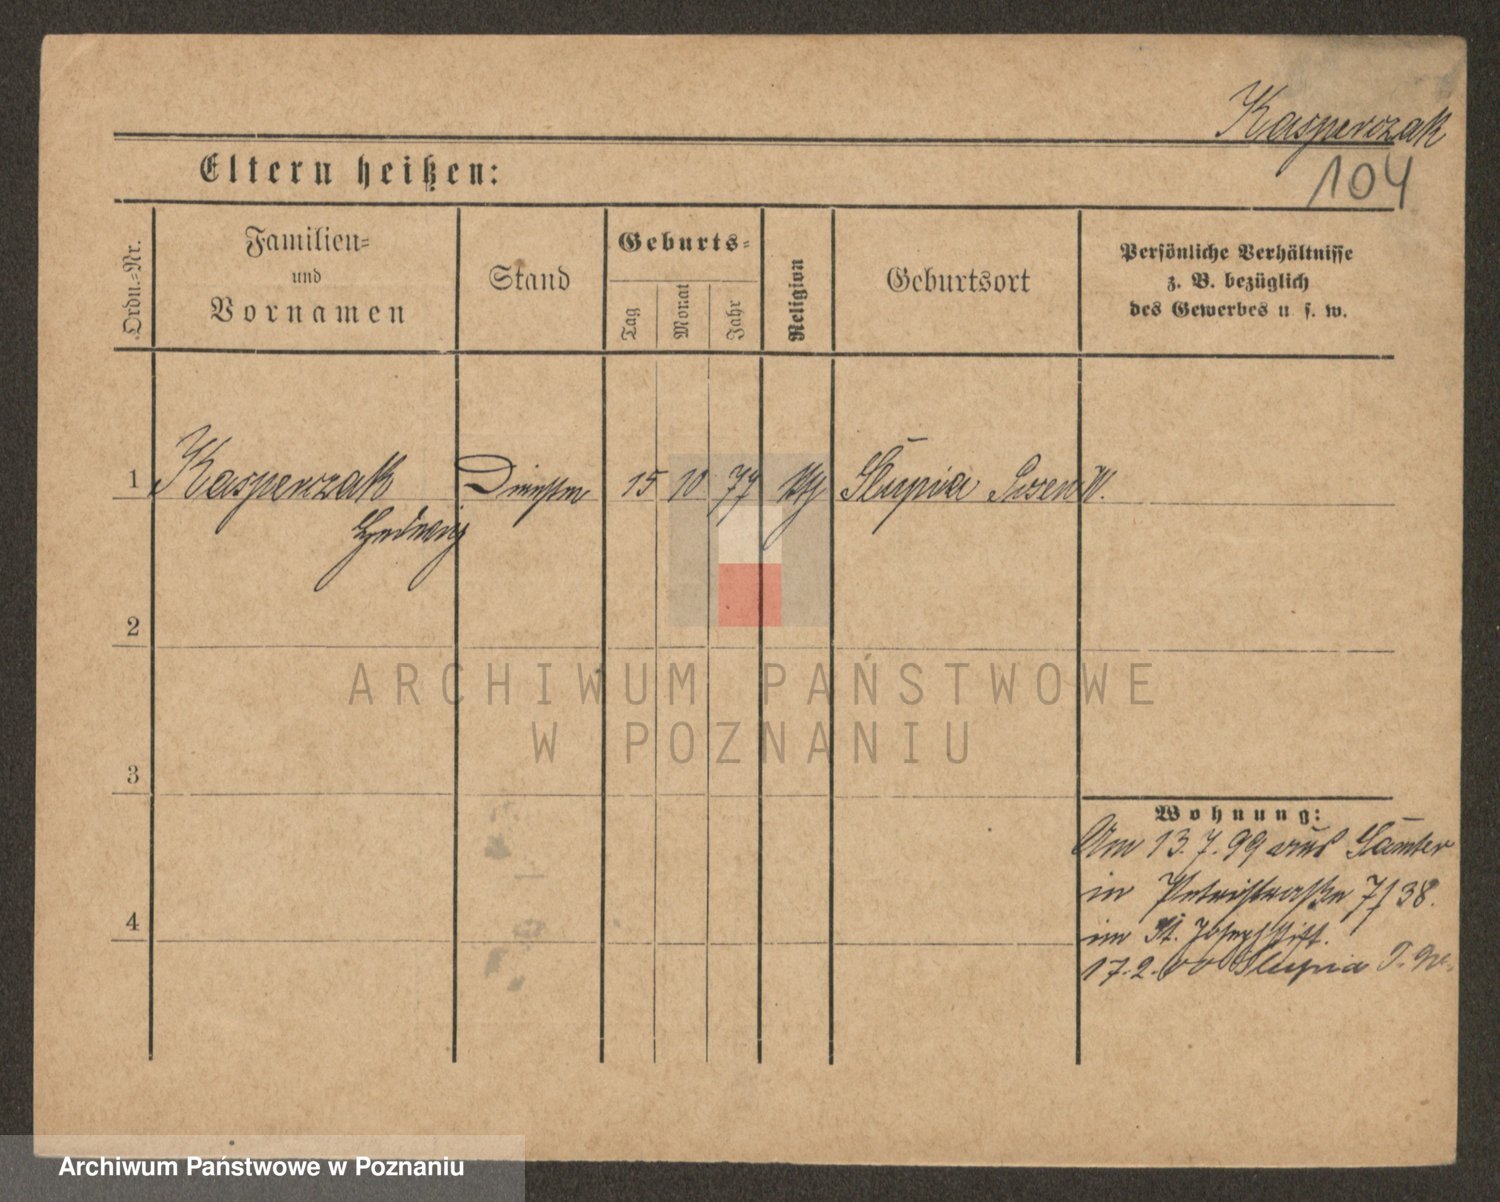 Kasperczak
104
Eltern heißen:
Ordn.-Nr.
Familien-
und
Vornamen
Stand
Geburts-
Tag
Monat
Jahr
Religion
Geburtsort
Persönliche Verhältnisse
z. B. bezüglich
des Gewerbes u. s. w.
1 Kasperczak 15 10 77 kth Slupia Posen W.
Hedwig
2
3
4
Wohnung:
Am 13.7.99 aus Samter
in Petristraße 7 / 38.
im St. Josephstift.
17.2.00 Slupia P. W.
ARCHIWUM PAŃSTWOWE
W POZNANIU
Archiwum Państwowe w Poznaniu